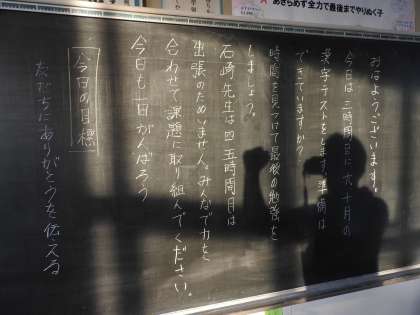 あきらめず全力で最後までやりぬく子
おはようございます。
今日は三時間目に六十月の
漢字テストをします。準備は
できていますか？
時間を見つけて最後の勉強を
しましょう。
石崎先生は四、五時間目は
出張のためいません。みんなで力を
合わせて課題に取り組んでください。
今日も一日がんばろう
今日の目標
友だちにありがとうを伝える